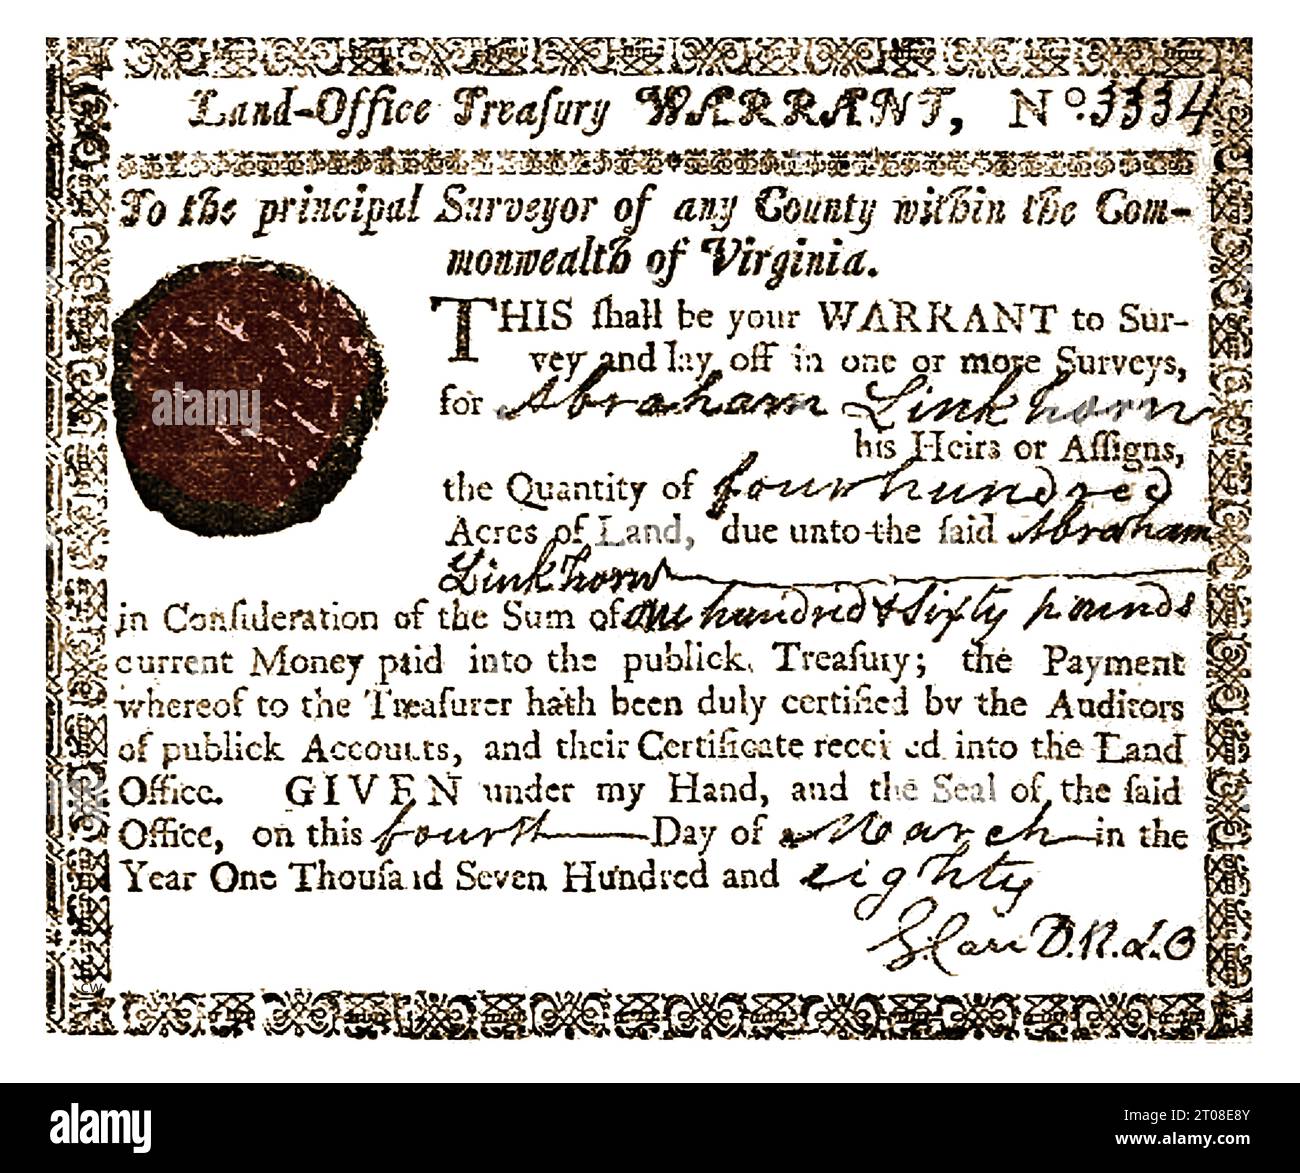 Land-Office Treaſury WARRANT, No. 3334
To the principal Surveyor of any County within the Com-
monwealth of Virginia.
THIS ſhall be your WARRANT to Sur-
vey and lay off in one or more Surveys,
for Abraham Linkhorn
his Heirs or Aſſigns,
the Quantity of four hundred
Acres of Land, due unto the ſaid Abraham
Linkhorn
in Conſideration of the Sum of one hundred & sixty pounds
current Money paid into the publick Treaſury; the Payment
whereof to the Treaſurer hath been duly certified by the Auditors
of publick Accounts, and their Certificate received into the Land
Office. GIVEN under my Hand, and the Seal of the ſaid
Office, on this fourth Day of March in the
Year One Thouſand Seven Hundred and eighty
S. Carr D.R.L.O
CW
alamy
alamy
Image ID: 2T08E8Y
www.alamy.com